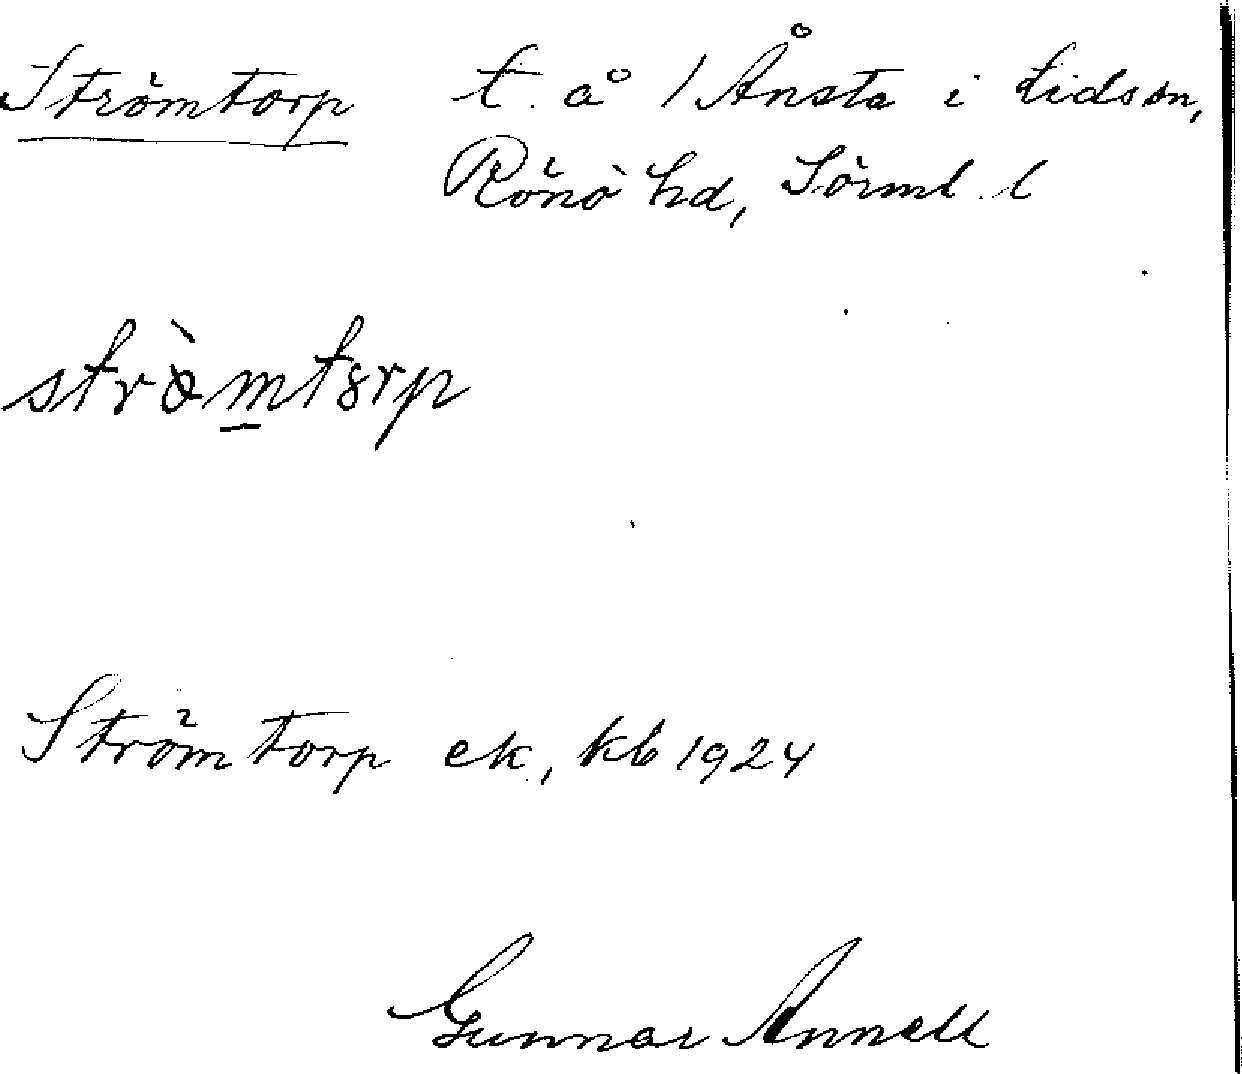 Strömtorp t. å 1 Ånsta i Lidson,
Rönö hd, Sörml. l
strö̀m̲tɞrp
Strömtorp ek., kb 1924
Gunnar Annell